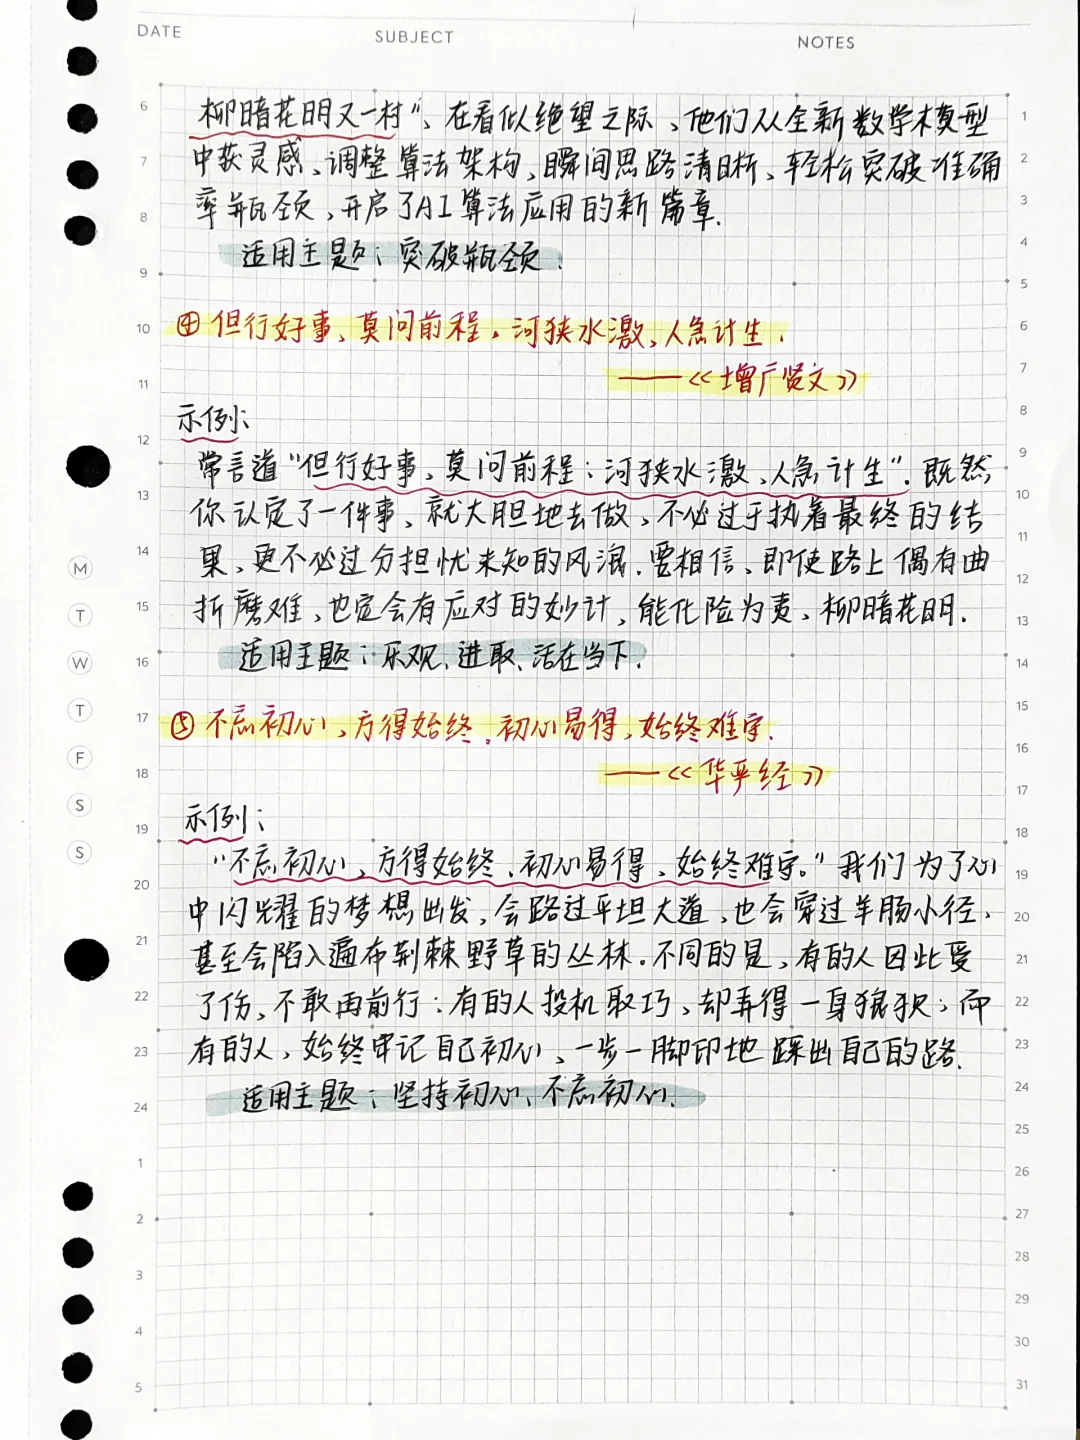 DATE SUBJECT NOTES
柳暗花明又一村”，在看似绝望之际，他们从全新数学模型
中获灵感，调整算法架构，瞬间思路清晰，轻松突破准确
率瓶颈，开启了AI算法应用的新篇章.
适用主题：突破瓶颈.
④ 但行好事，莫问前程。河狭水激，人急计生.
——《增广贤文》
示例：
常言道“但行好事，莫问前程；河狭水激，人急计生”.既然
你认定了一件事，就大胆地去做，不必过于执着最终的结
果，更不必过分担忧未知的风浪.要相信，即使路上偶有曲
折磨难，也定会有应对的妙计，能化险为夷，柳暗花明.
适用主题：乐观、进取、活在当下.
⑤ 不忘初心，方得始终.初心易得，始终难守.
——《华严经》
示例：
“不忘初心，方得始终.初心易得，始终难守。”我们为了心
中闪耀的梦想出发，会路过平坦大道，也会穿过羊肠小径，
甚至会陷入遍布荆棘野草的丛林.不同的是，有的人因此受
了伤，不敢再前行；有的人投机取巧，却弄得一身狼狈；而
有的人，始终牢记自己初心，一步一脚印地踩出自己的路.
适用主题：坚持初心、不忘初心.
M
T
W
T
F
S
S
6
7
8
9
10
11
12
13
14
15
16
17
18
19
20
21
22
23
24
1
2
3
4
5
1
2
3
4
5
6
7
8
9
10
11
12
13
14
15
16
17
18
19
20
21
22
23
24
25
26
27
28
29
30
31